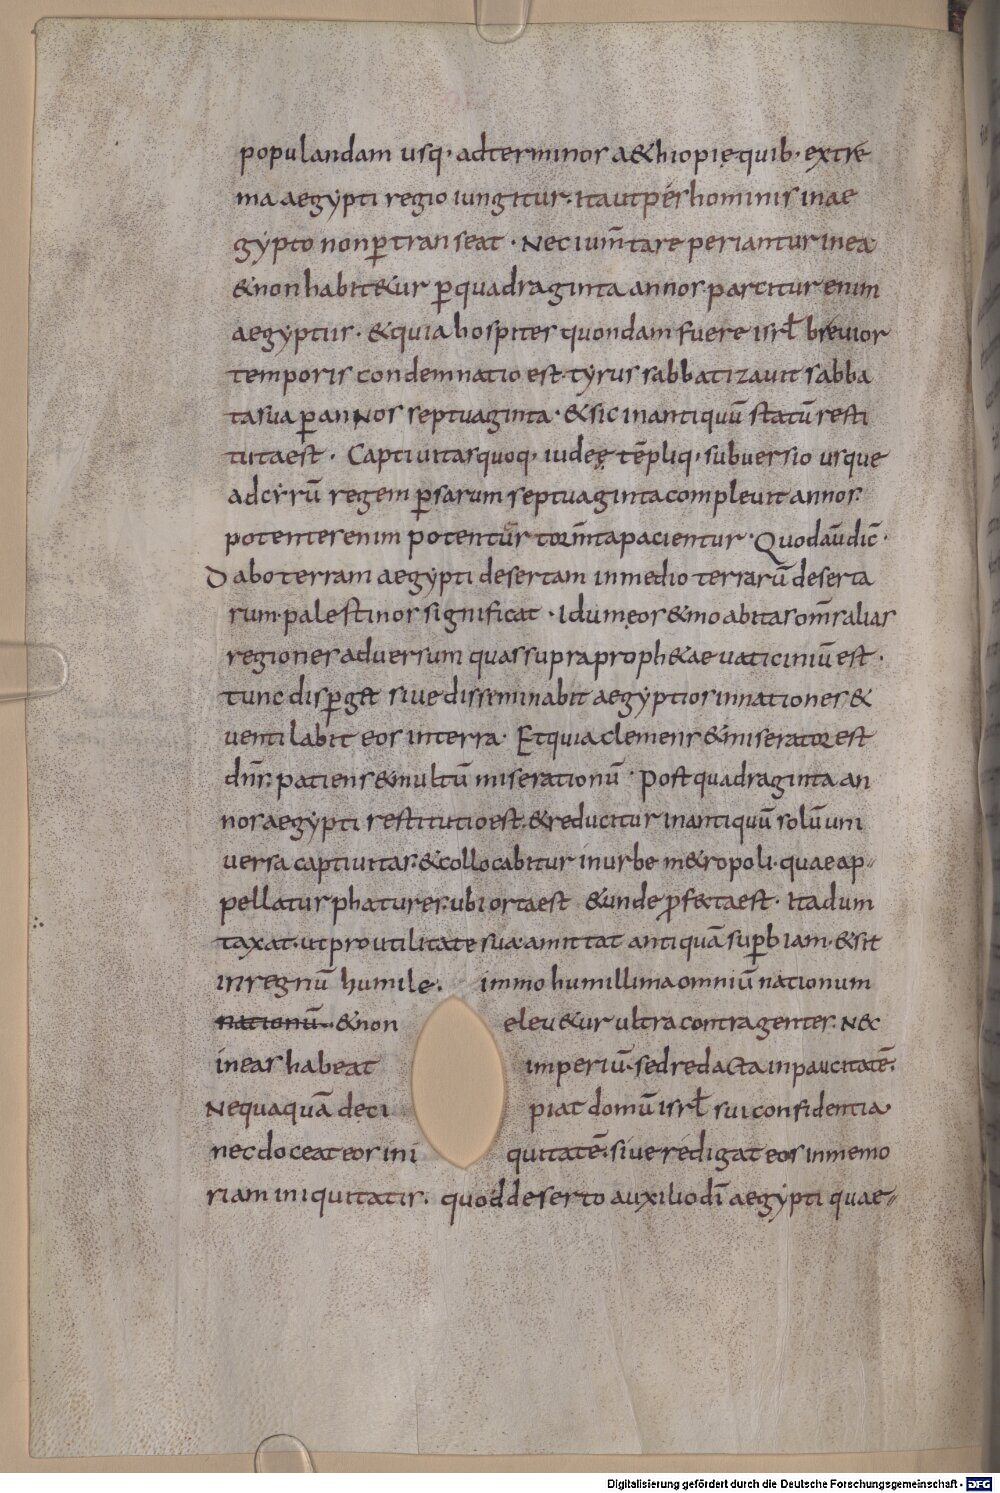 populandam usq· adterminos a&hiopię quib· extre
ma aegypti regio iungitur. ita ut pes hominis in ae
gypto non ꝑtranseat · Nec ium̅ta re periantur in ea
& non habit&ur ꝑ quadraginta annos. partitur enim
aegyptus · & quia hospites quondam fuere isrł brevior
temporis condemnatio est. tyrus sabbatizavit sabba
ta sua ꝑ anNos septuaginta · & sic in antiquū statū resti
tuta est · Captiuitas quoq· iudeę tēpliq· subversio usque
ad cyrū regem ꝑsarum septuaginta complevit annos.
potentes enim potentūr torm̅ta pacientur · Quod aūdic̄ ·
Dabo terram aegypti desertam in medio terrarū deserta
rum. palestinos significat · Idumęos & moabitas om̅s alias
regiones adversum quas supra proph&ae vaticiniū est ·
tunc disꝑg& sive disseminabit aegyptios in nationes &
ventilabit eos in terra · Et quia clemens & miserator est
dn̅s. patiens & multū miserationū · Post quadraginta an
nos aegypti restitutio est. & reducitur in antiquū solū uni
versa captivitas. & collocabitur in urbe m&ropoli. quae ap-
pellatur phatures. ubi orta est & unde ꝓfecta est · Ita dum
taxat. ut pro utilitate sua amittat antiquā suꝑbiam. & sit
in regnū humile. immo humillima omniū nationum
nationū. & non elev&ur ultra contra gentes. Nec
in eas habeat imperiū. sed redacta in paucitatē.
Nequaquā deci piat domū isrł sui confidentia
nec doceat eos ini quitatē. sive redigat eos in memo
riam iniquitatis. quod deserto auxilio dī aegypti quae-
Digitalisierung gefördert durch die Deutsche Forschungsgemeinschaft - DFG